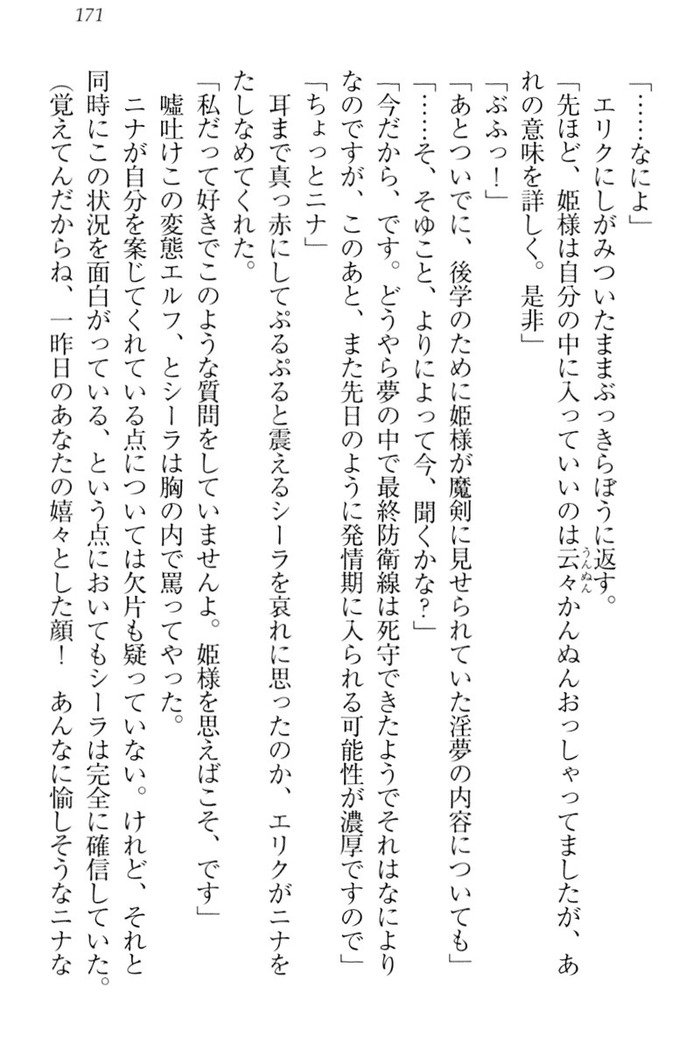 171
「……なによ」
　エリクにしがみついたままぶっきらぼうに返す。
「先ほど、姫様は自分の中に入っていいのは云々かんぬんおっしゃってましたが、あ
れの意味を詳しく。是非」
「ぶふっ！」
「あとついでに、後学のために姫様が魔剣に見せられていた淫夢の内容についても」
「……そ、そゆこと、よりによって今、聞くかな？」
「今だから、です。どうやら夢の中で最終防衛線は死守できたようでそれはなにより
なのですが、このあと、また先日のように発情期に入られる可能性が濃厚ですので」
「ちょっとニナ」
　耳まで真っ赤にしてぷるぷると震えるシーラを哀れに思ったのか、エリクがニナを
たしなめてくれた。
「私だって好きでこのような質問をしていませんよ。姫様を思えばこそ、です」
　嘘吐けこの変態エルフ、とシーラは胸の内で罵ってやった。
　ニナが自分を案じてくれている点については欠片も疑っていない。けれど、それと
同時にこの状況を面白がっている、という点においてもシーラは完全に確信していた。
（覚えてんだからね、一昨日のあなたの嬉々とした顔！　あんなに愉しそうなニナな
うんぬん